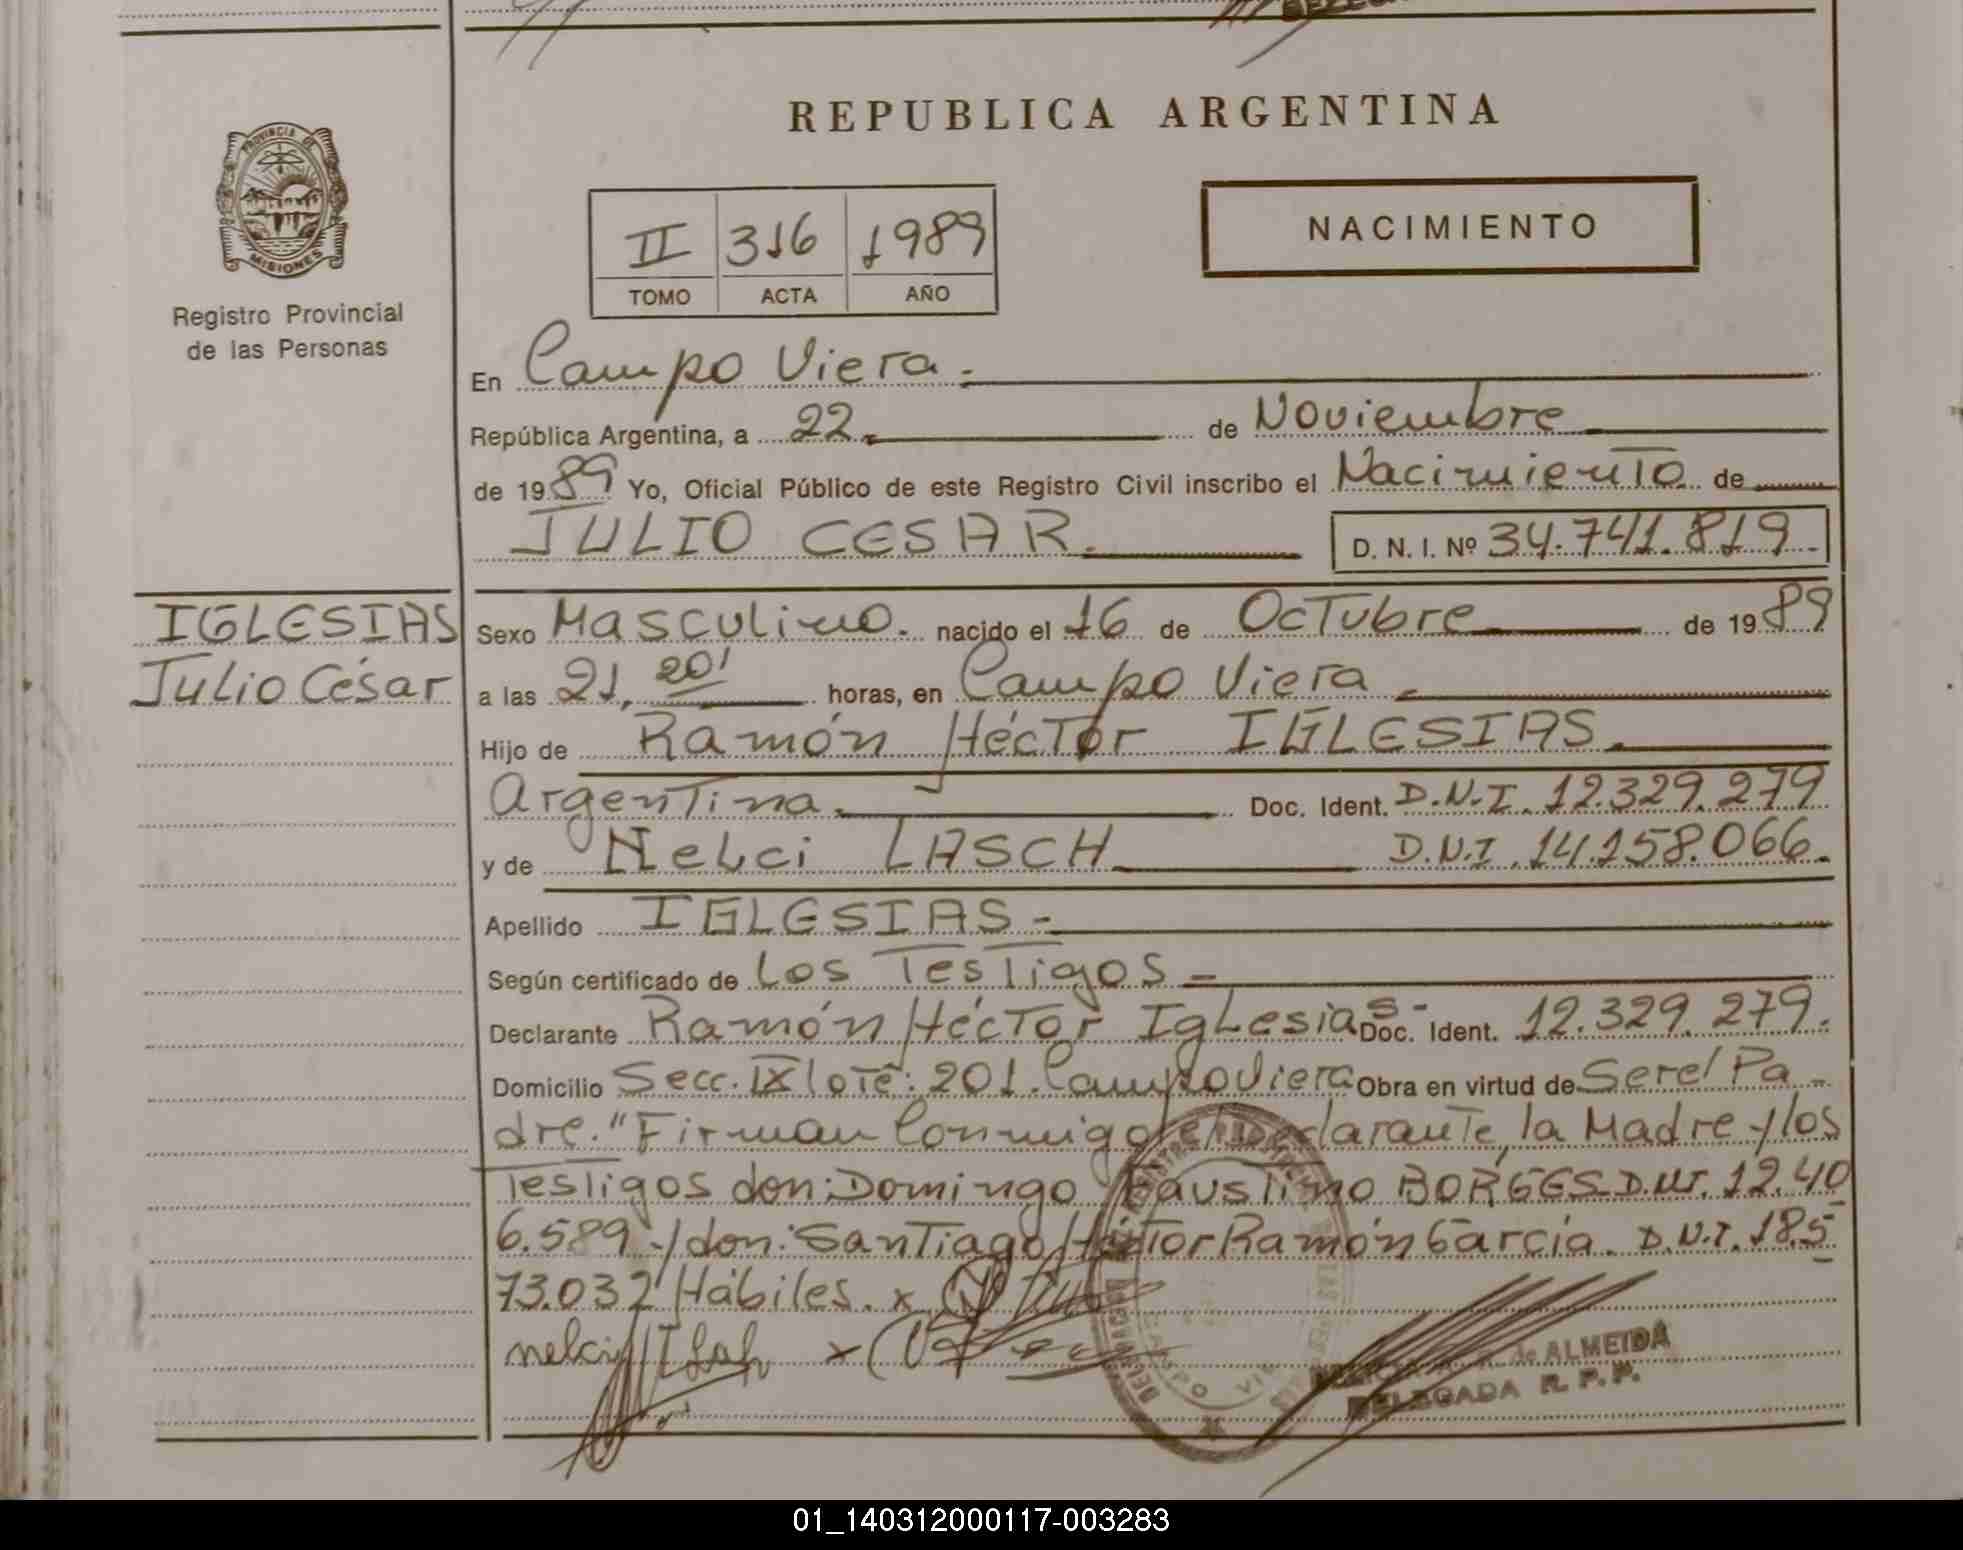 REPUBLICA ARGENTINA
PROVINCIA DE
MISIONES
Registro Provincial
de las Personas
II 316 1989
TOMO ACTA AÑO
NACIMIENTO
En Campo Viera.
República Argentina, a 22 de Noviembre
de 1989 Yo, Oficial Público de este Registro Civil inscribo el Nacimiento de
JULIO CESAR. D. N. I. Nº 34.741.819.
IGLESIAS
Julio César
Sexo Masculino. nacido el 16 de Octubre de 1989
a las 21, 20' horas, en Campo Viera
Hijo de Ramón Héctor IGLESIAS.
Argentina. Doc. Ident. D.N.I. 12.329.279
y de Nelci LASCH D.N.I. 14.158.066.
Apellido IGLESIAS -
Según certificado de Los Testigos -
Declarante Ramón Héctor Iglesias- Doc. Ident. 12.329.279.
Domicilio Secc. IX lote: 201. Campo Viera Obra en virtud de Ser el Pa-
dre." Firman Conmigo el Declarante, la Madre y los
Testigos don: Domingo Faustino BORGES D.N.I. 12.40
6.589 y don: Santiago Héctor Ramón García. D.N.I. 18.5
73.032 Hábiles. x
nelci x
CAMPO VIE
de ALMEIDA
DELEGADA R. P. P.
01_140312000117-003283